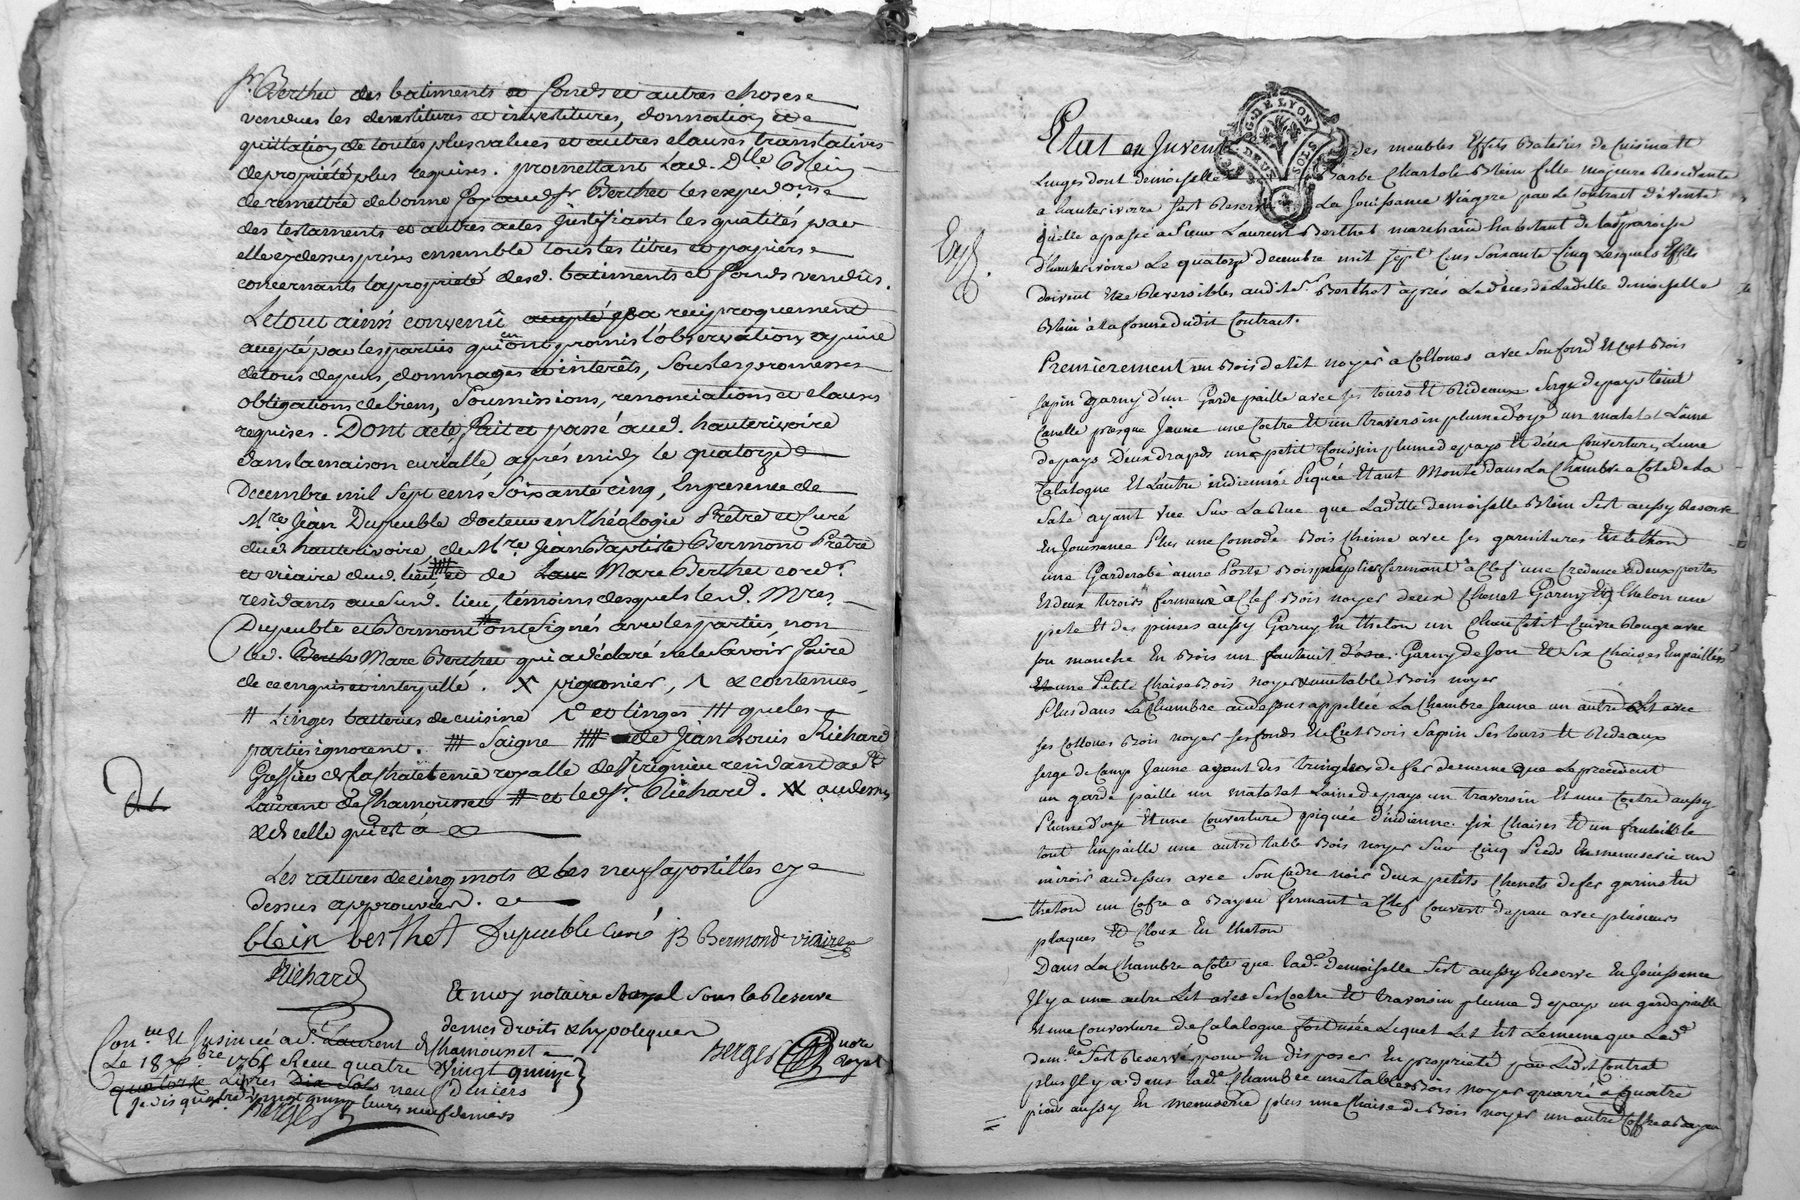 Sr. Berthet des batiments et fonds et autres choses
vendues les devestitures et investitures, donnation et
quittation de toutes plus values et autres clauses translatives
de propriété plus requises. promettant lad. Dlle Blein
de remettre de bonne foy aud. Sr Berthet les expeditions
des testaments et autres actes justifiants les qualités par
elle cy dessus prises ensemble tous les titres et papiers
concernants la propriété desd. batiments et fonds vendus.
Le tout ainsi convenû accepté et a reciproquement
accepté par les parties qui en ont promis l'observation a peine
de tous depens, dommages et interêts, sous les promesses
obligations de biens, soumissions, renonciations et clauses
requises. Dont acte, fait et passé aud. hauterivoire
dans la maison curialle après midy le quatorze
Decembre mil sept cens soixante cinq, En presence de
Mre Jean Dupeuble docteur en théologie Prêtre et Curé
dud. hauterivoire, de Mre Jean Baptiste Bermont Prêtre
et vicaire dud. lieu et de Laur Marc Berthet cord.r
residants au susd. lieu, témoins desquels lesd. Mres
Dupeuble et Bermont ont signés avec les parties non
led. Berth Marc Berthet qui a déclaré ne le sçavoir faire
de ce enquis et interpellé. X pigeonier, Λ & contenues,
# Linges batteries de cuisine et linges # que les
parties ignorent. # Saigne # de Jean Louis Richard
Greffier de la Chatellenie royalle de residant a St
Laurent de Chamousset # et led. Sr. Richard. XX au dessus
& de celle qui est à
Les ratures de cinq mots & les neuf apostilles cy
dessus approuvées.
blein berthet Dupeuble curé JB Bermond vicaire
Richard
Et moy notaire royal sous la Reserve
de mes droits & hypoteques
Berger nore royal
Con.lé Et Insinué a St. Laurent de Chamousset
Le 18 Xbre 1765 Reçu quatre vingt quinze
quatorze Livres Dix sols neuf deniers
je dis quatre vingt quinze livres neuf deniers
Berger
Etat en Inventaire des meubles Effets Bateries de Cuisine et
G. DE LYON
DEUX SOLS
Linges dont demoiselle Barbe Charlote Blein fille majeure Residente
a hauterivoire sest Reservé La Jouissance Viagere par le Contract de vente
quelle a passé a Sieur Laurent Berthet marchand habitant de la paroisse
Exp.
d'hauterivoire Le quatorze decembre mil sept Cens Soixante Cinq Lesquels Effets
doivent Etre Reversibles audit Sr. Berthet après Le deces de Laditte demoiselle
Blein à la forme dudit Contract.
Premièrement un Bois de lit noyer à Collones avec son fond Et Ciel Bois
sapin garny d'un Garde paille avec ses tours Et Rideaux Serge de pays teint
Canelle presque Jaune une Coetre Et un traversin plume d'oye un matelat Laine
de pays Deux draps un petit Coussin plume de pays Et deux Couvertures, Lune
Catalogne Et Lautre indienne Piquée Etant Monté dans La Chambre a Coté de La
Sale ayant vue Sur La Rue que Laditte demoiselle Blein Sest aussy Reservé
En Jouissance Plus une Comode Bois Chene avec ses garnitures de lethon
une Garderobe a une Porte Bois peuplier fermant à Clef une Credence a deux portes
Et deux tiroirs fermant à Clef Bois noyer deux Chenet Garny de lheton une
pele Et des pinses aussy Garny En lheton un Chaufelit Cuivre Rouge avec
son manche En Bois un fauteuil d'osier Garny de Jon Et Six Chaises Empaillés
Et une Petite Chaise Bois noyer & une table Bois noyer
Plus dans La Chambre au dessus appellée La Chambre Jaune un autre Lit avec
ses Collones Bois noyer ses fonds Et Ciel Bois Sapin Ses tours Et Rideaux
serge de Camp Jaune ayant des tringles de fer de meme que Le precedent
un garde paille un matelat Laine de pays un traversin Et une Coetre aussy
Plume d'oye Et une Couverture piquée d'indienne six Chaises Et un fauteuil le
tout Empaille une autre table Bois noyer Sur Cinq Pieds En menuserie un
miroir au dessus avec Son Cadre noir deux petits Chenets de fer garnis En
lheton un Cofre a Bayeu fermant à Clef Couvert de peau avec plusieurs
plaques Et Cloux En lheton
Dans La Chambre a Coté que lade. demoiselle Sest aussy Reservé En Jouissance
Il y a une autre Lit avec Ses Coetre Et traversin plume de pays un garde paille
Et une Couverture de Catalogne fort usée Lequel Lit Est Le meme que Lade.
demlle Sest Reservé pour En disposer En propriété par Ledit Contrat
plus Il y a dans lade. Chambre une table Bois noyer quarré a quatre
pieds aussy En menuserie plus une Chaise de Bois noyer un autre Coffre a Bayeu